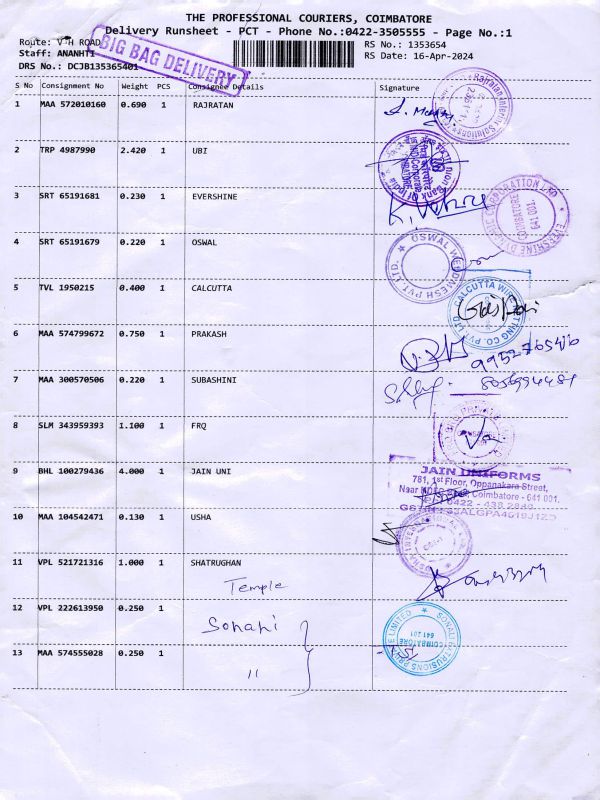 THE PROFESSIONAL COURIERS, COIMBATORE
Delivery Runsheet - PCT - Phone No.:0422-3505555 - Page No.:1
Route: V H ROAD
RS No.: 1353654
Staff: ANANHTI
RS Date: 16-Apr-2024
DRS No.: DCJB135365401
BIG BAG DELIVERY
S No Consignment No Weight PCS Consignee Details Signature
1 MAA 572010160 0.690 1 RAJRATAN
2 TRP 4987990 2.420 1 UBI
3 SRT 65191681 0.230 1 EVERSHINE
EVERSHINE DYNAMIC CORPORATION LTD
COIMBATORE
641 001.
4 SRT 65191679 0.220 1 OSWAL
OSWAL WELDMESH PVT. LTD.
5 TVL 1950215 0.400 1 CALCUTTA
6 MAA 574799672 0.750 1 PRAKASH
7 MAA 300570506 0.220 1 SUBASHINI
8 SLM 343959393 1.100 1 FRQ
9 BHL 100279436 4.000 1 JAIN UNI
JAIN UNIFORMS
781, 1st Floor, Oppanakara Street,
Coimbatore - 641 001.
10 MAA 104542471 0.130 1 USHA
11 VPL 521721316 1.000 1 SHATRUGHAN
Temple
12 VPL 222613950 0.250 1 Sonali
COIMBATORE
641 201
13 MAA 574555028 0.250 1 "